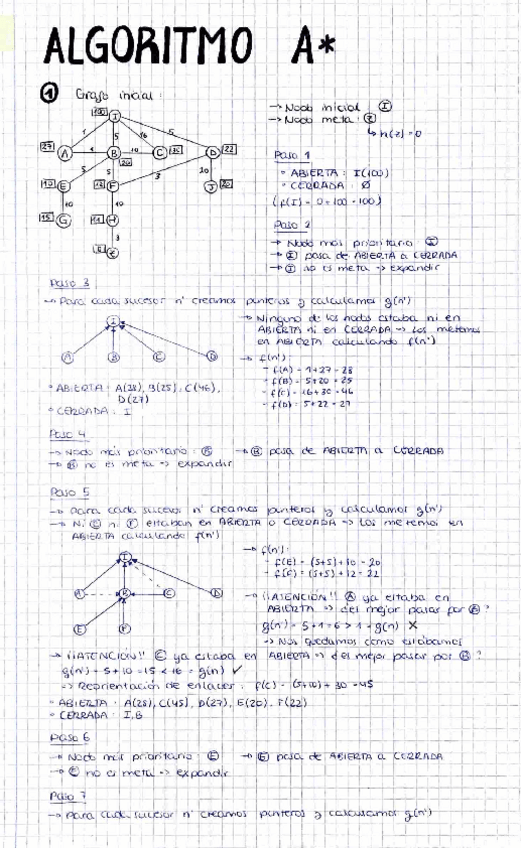 ALGORITMO A*
① Grafo inicial:
→ Nodo inicial: Ⓘ
→ Nodo meta: Ⓩ
↳ h(z) = 0
100
I
1 5 16 5
27 A 1 B 10 C 30 D 22
20
5 5 3 10
10 E 12 F J 20
10 10
15 G 11 H
3
0 Z
Paso 1
• ABIERTA: I(100)
• CERRADA: Ø
(f(I) = 0+100 = 100)
Paso 2
→ Nodo más prioritario: Ⓘ
→ Ⓘ pasa de ABIERTA a CERRADA
→ Ⓘ no es meta → expandir
Paso 3
→ Para cada sucesor n' creamos punteros y calculamos g(n')
I
A B C D
→ Ninguno de los nodos estaba ni en
ABIERTA ni en CERRADA → Los metemos
en ABIERTA calculando f(n')
→ f(n'):
- f(A) = 1+27 = 28
- f(B) = 5+20 = 25
- f(C) = 16+30 = 46
- f(D) = 5+22 = 27
• ABIERTA: A(28), B(25), C(46),
D(27)
• CERRADA: I
Paso 4
→ Nodo más prioritario: Ⓑ → Ⓑ pasa de ABIERTA a CERRADA
→ Ⓑ no es meta → expandir
Paso 5
→ Para cada sucesor n' creamos punteros y calculamos g(n')
→ Ni Ⓔ ni Ⓕ estaban en ABIERTA o CERRADA → Los metemos en
ABIERTA calculando f(n')
I
A B C D
E F
→ f(n'):
- f(E) = (5+5)+10 = 20
- f(F) = (5+5)+12 = 22
→ ¡¡ATENCIÓN!! Ⓐ ya estaba en
ABIERTA → ¿es mejor pasar por Ⓑ?
g(n') = 5+1 = 6 > 1 = g(n) ✗
→ Nos quedamos como estábamos
→ ¡¡ATENCIÓN!! Ⓒ ya estaba en ABIERTA → ¿es mejor pasar por Ⓑ?
g(n') = 5+10 = 15 < 16 = g(n) ✓
→ Reorientación de enlaces: f(C) = (5+10)+30 = 45
• ABIERTA: A(28), C(45), D(27), E(20), F(22)
• CERRADA: I, B
Paso 6
→ Nodo más prioritario: Ⓔ → Ⓔ pasa de ABIERTA a CERRADA
→ Ⓔ no es meta → expandir
Paso 7
→ Para cada sucesor n' creamos punteros y calculamos g(n')